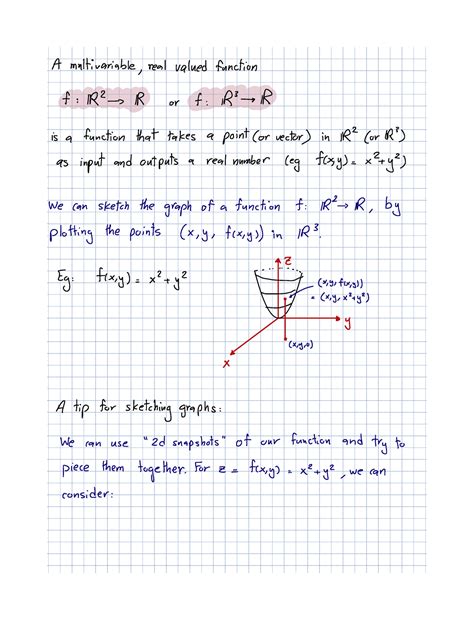 A multivariable, real valued function
f : ℝ² → ℝ or f : ℝ³ → ℝ
is a function that takes a point (or vector) in ℝ² (or ℝ³)
as input and outputs a real number (eg f(x,y) = x²+y²)
We can sketch the graph of a function f: ℝ² → ℝ, by
plotting the points (x, y, f(x,y)) in ℝ³.
Eg: f(x,y) = x² + y²
z
(x,y, f(x,y))
= (x,y, x²+y²)
y
(x,y,0)
x
A tip for sketching graphs:
We can use "2d snapshots" of our function and try to
piece them together. For z = f(x,y) = x² + y², we can
consider: